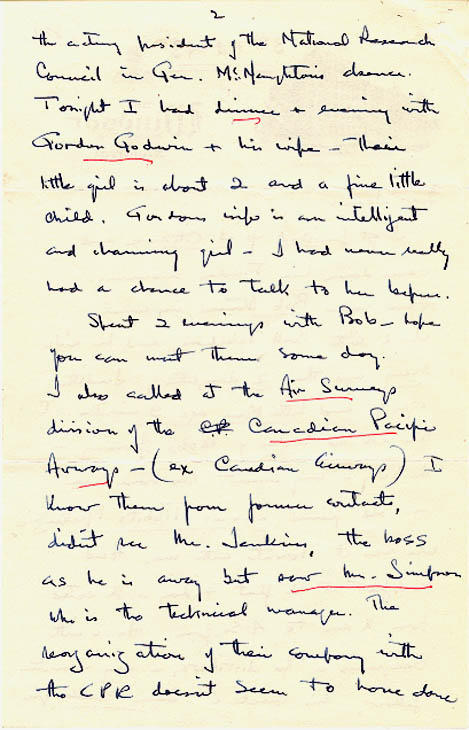 2
the acting president of the National Research
Council in Gen. McNaughton's absence.
Tonight I had dinner + evening with
Gordon Godwin + his wife – Their
little girl is about 2 and a fine little
child. Gordons wife is an intelligent
and charming girl – I had never really
had a chance to talk to her before.
Spent 2 evenings with Bob – hope
you can meet them some day.
I also called at the Air Surveys
division of the CP Canadian Pacific
Airways – (ex Canadian Airways) I
know them from former contacts,
didn't see Mr. Jenkins, the boss
as he is away but saw Mr. Simpson
who is the technical manager. The
reorganization of their company with
the CPR doesn't seem to have done